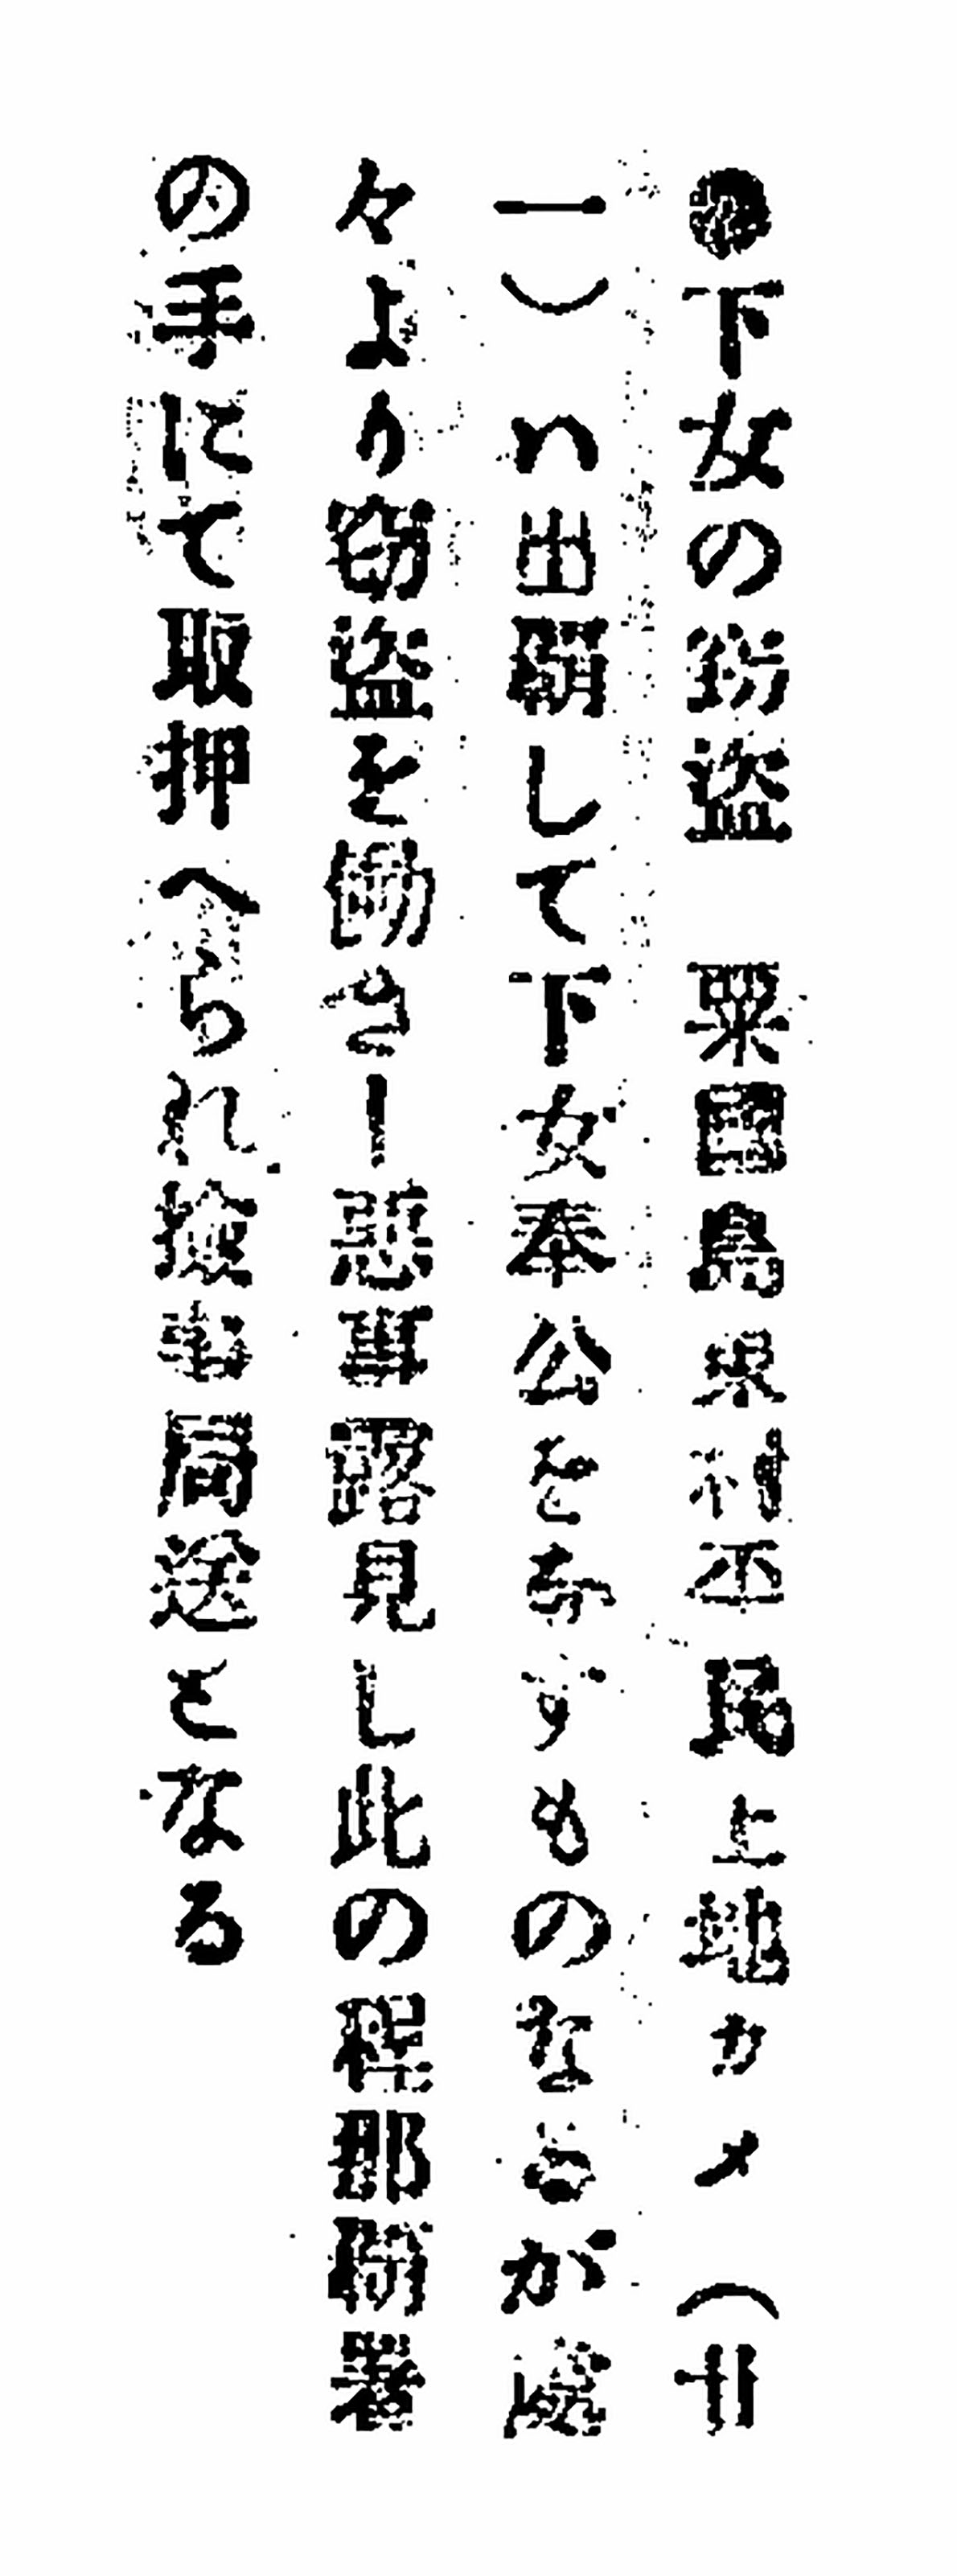 ●下女の窃盗　粟國島東村平民上地カメ（廿
一）ハ出覇して下女奉公をなすものなるが處
々より窃盗を働き惡事露見し此の程那覇署
の手にて取押へられ撿事局送となる